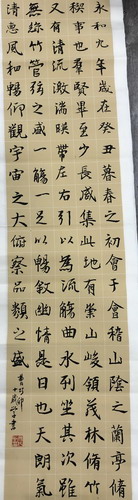 永和九年歲在癸丑暮春之初會于會稽山陰之蘭亭脩
稧事也群賢畢至少長咸集此地有崇山峻領茂林脩竹
又有清流激湍暎帶左右引以為流觴曲水列坐其次雖
無絲竹管弦之盛一觴一足以暢敘幽情是日也天朗氣
清惠風和暢仰觀宇宙之大俯察品類之盛